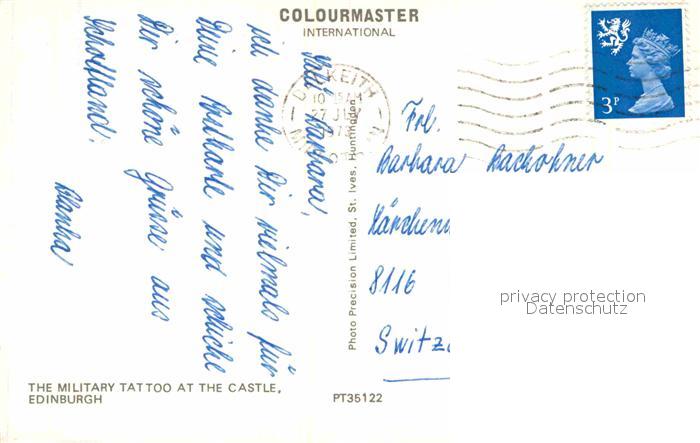 COLOURMASTER
INTERNATIONAL
3P
DALKEITH
10 15 AM
1973
Barbara,
ich danke Dir vielmals für
Deine Postkarte und schicke
Dir schöne Grüsse aus
Schottland.
Frl.
Barbara Bachofner
8116
Photo Precision Limited, St. Ives, Huntingdon
privacy protection
Datenschutz
THE MILITARY TATTOO AT THE CASTLE,
EDINBURGH
PT35122